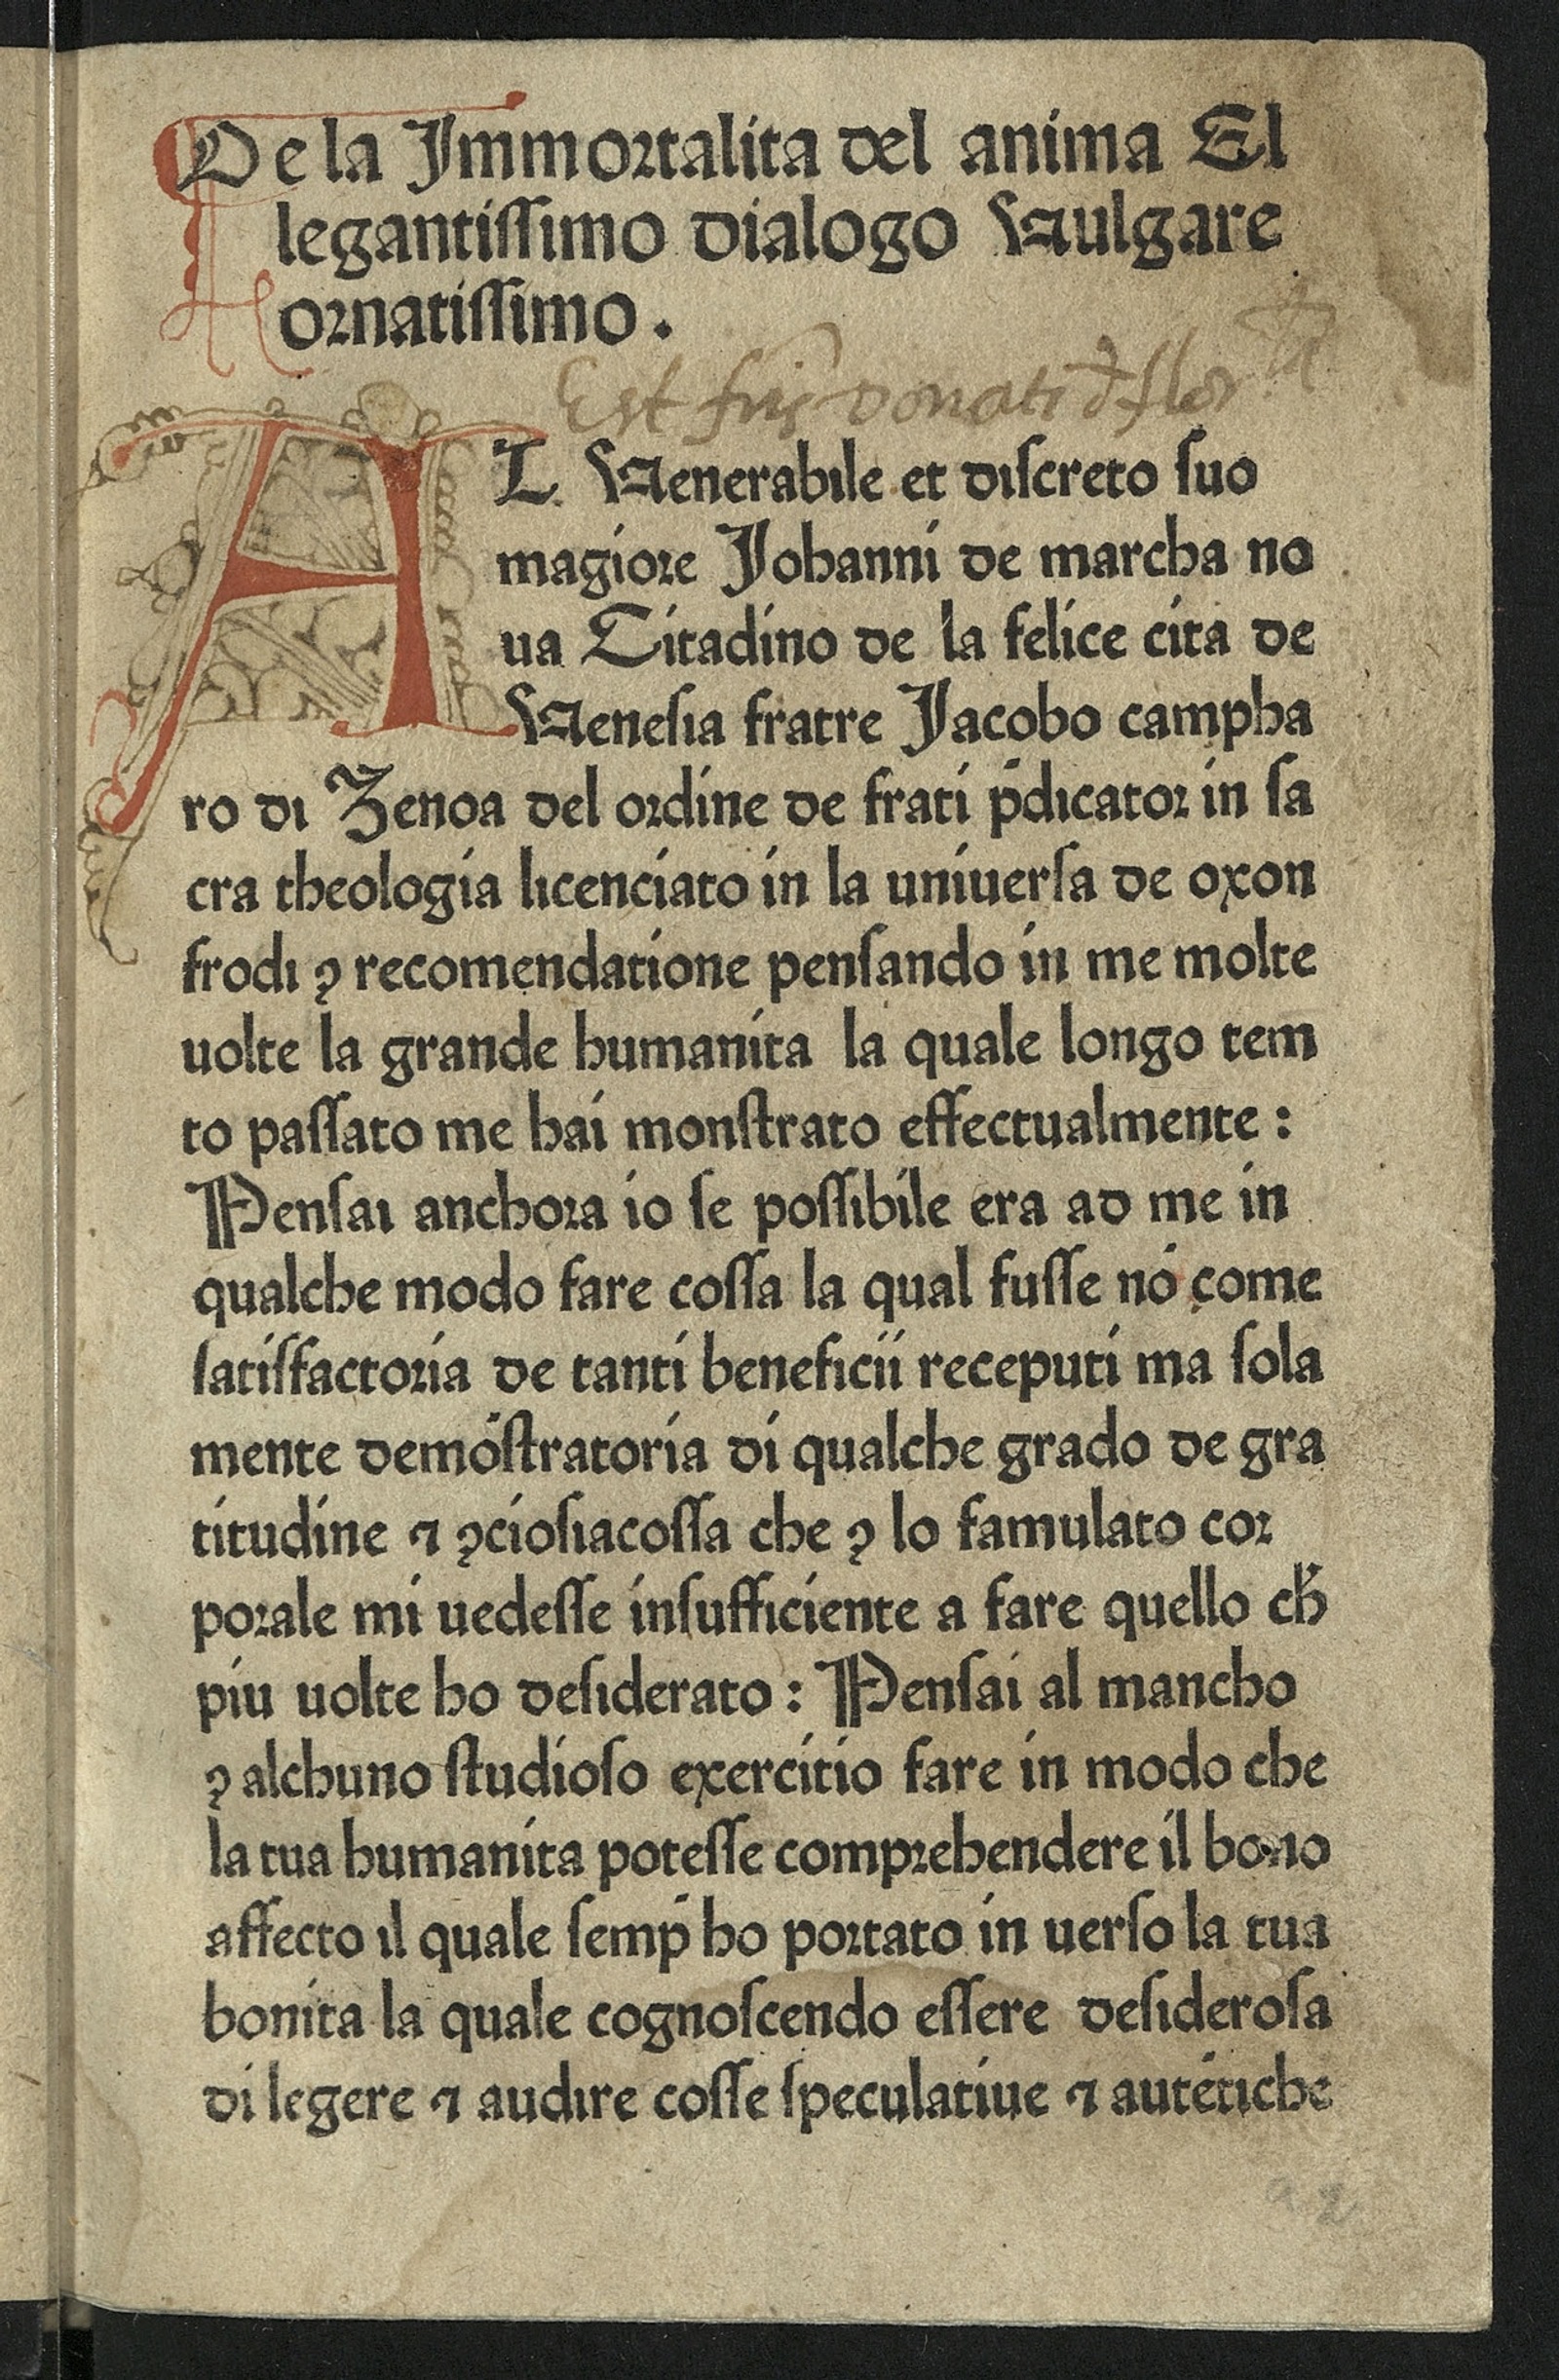 De la Immortalita del anima El
legantissimo dialogo Vulgare
ornatissimo.
Est fris donati d̄ flor
AL Venerabile et discreto suo
magiore Johanni de marcha no
ua Citadino de la felice cita de
Venesia fratre Jacobo campha
ro di Zenoa del ordine de frati p̄dicator in sa
cra theologia licenciato in la uniuersa de oxon
frodi ꝑ recomendatione pensando in me molte
uolte la grande humanita la quale longo tem
to passato me hai monstrato effectualmente :
Pensai anchora io se possibile era ad me in
qualche modo fare cossa la qual fusse nō come
satisfactoria de tanti beneficii receputi ma sola
mente demōstratoria di qualche grado de gra
titudine ⁊ ꝑciosiacossa che ꝑ lo famulato cor
porale mi uedesse insufficiente a fare quello ch̄
piu uolte ho desiderato : Pensai al mancho
ꝑ alchuno studioso exercitio fare in modo che
la tua humanita potesse comprehendere il bono
affecto il quale semp̄ ho portato in uerso la tua
bonita la quale cognoscendo essere desiderosa
di legere ⁊ audire cosse speculatiue ⁊ autētiche
a 2